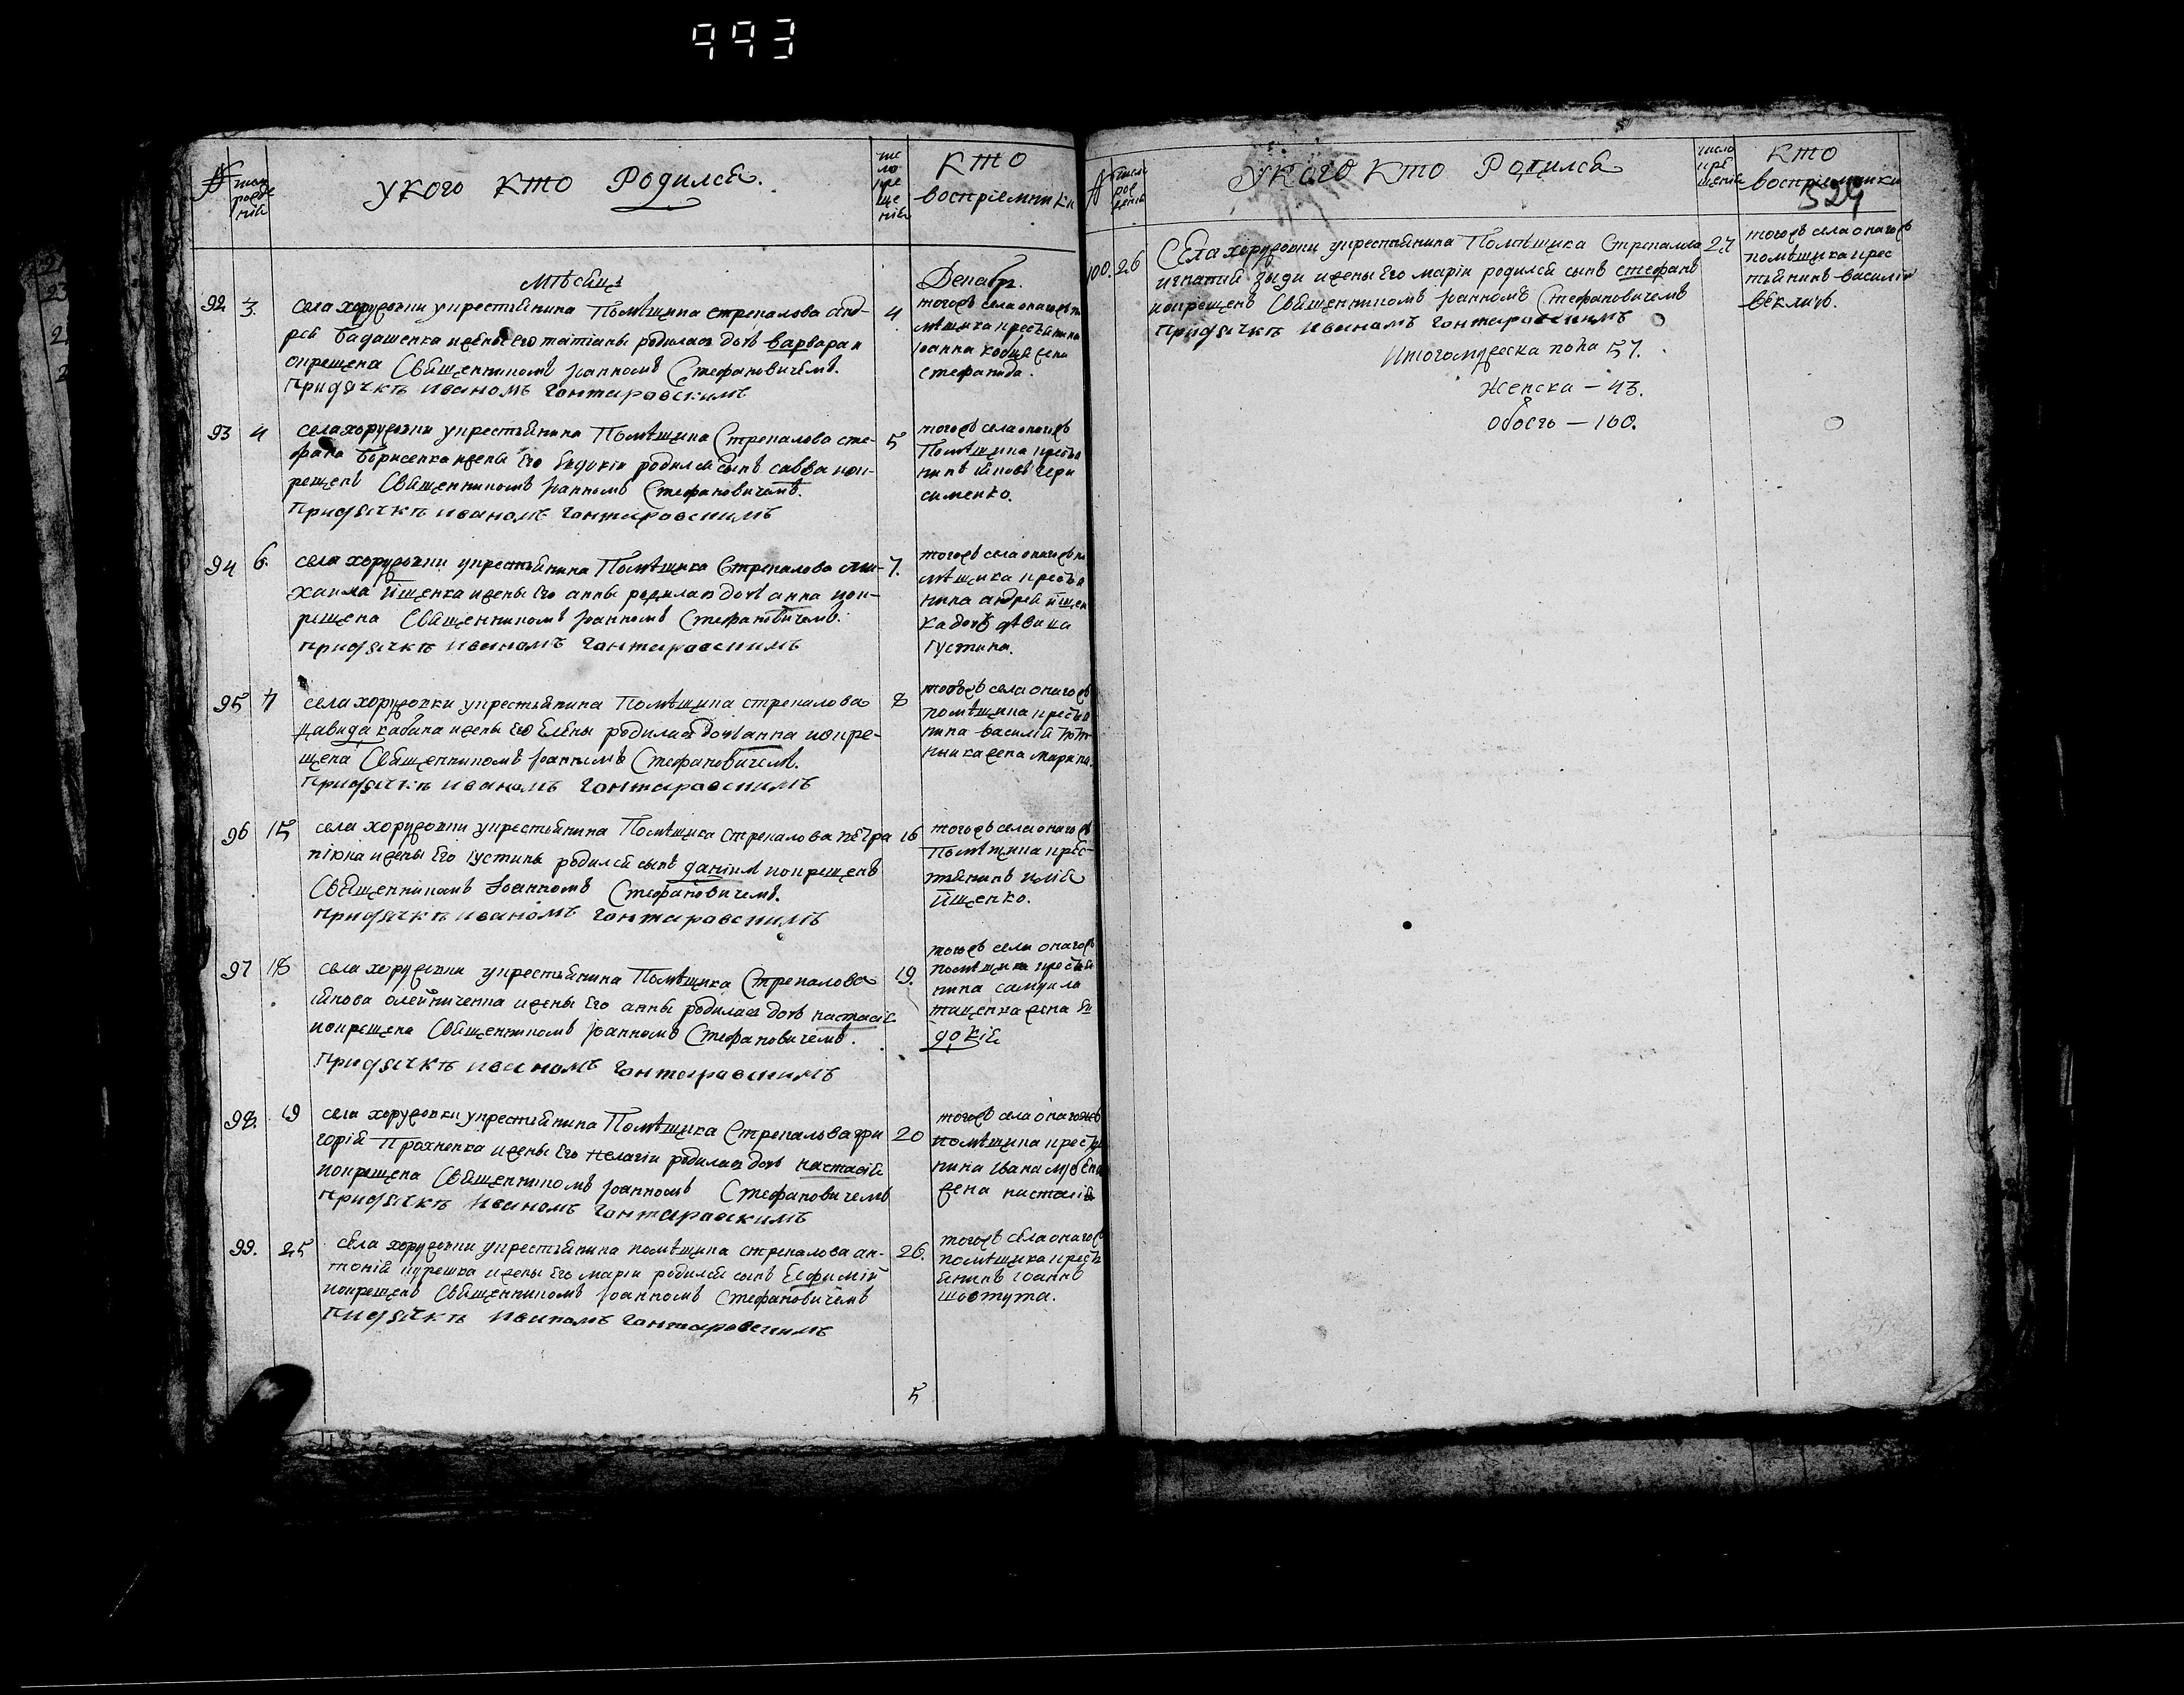 993
№
число рожденія
У кого кто Родился.
число крещенія
Кто воспріемники
Мѣсяцъ Декабр.
92 3. села хоружовки укрестьянина Помѣщика стрекалова анд-
рея Бадашенка ижены Его татіаны родилась дочь варвара и
окрещена Священникомъ Іоанномъ Стефановичемъ.
При дячкѣ иваномъ Гонтаровскимъ
4 тогожъ села оногожъ по
мѣщика крестьянина
Іоанна жена
стефанида.
93 4 села хоружовки укрестьянина Помѣщика Стрекалова сте-
фана Борисенка ижены Его Евдокіи родился сынъ савва иок-
рещенъ Священникомъ Іоанномъ Стефановичемъ.
При дячкѣ иваномъ Гонтаровскимъ
5 тогожъ села оногожъ
Помѣщика крестья
нинъ іяковъ Гера
сименко.
94 6. села хоружовки укрестьянина Помѣщика Стрекалова ми-
хаила Ищенка ижены Его анны родилась дочь анна иок-
рещена Священникомъ Іоанномъ Стефановичемъ.
при дячкѣ иваномъ Гонтаровскимъ
7. тогожъ села оногожъ по
мѣщика крестья
нина андрея ищен
ка дочь дѣвица
Густина.
95 7 села хоружовки укрестьянина Помѣщика стрекалова
давида кабака ижены Его Елены родилась дочь анна иокре-
щена Священникомъ Іоанномъ Стефановичемъ.
При дячкѣ иваномъ Гонтаровскимъ
8 тогожъ села оногожъ
помѣщика крестья
нина василія
жена марина.
96 15 села хоружовки укрестьянина Помѣщика Стрекалова пётра
ижены Его Іустины родился сынъ даніилъ иокрещенъ
Священникомъ Іоанномъ Стефановичемъ.
при дячкѣ иваномъ Гонтаровскимъ
16 тогожъ села оногожъ
Помѣщика крес-
тьянинъ илія
ищенко.
97 18 села хоружовки укрестьянина Помѣщика Стрекалова
іякова олейниченка ижены Его анны родилась дочь настасія
иокрещена Священникомъ Іоанномъ Стефановичемъ.
При дячкѣ иваномъ Гонтаровскимъ
19. тогожъ села оногожъ
помѣщика крестья
нина самуила
жена Ев
докія
98. 19 села хоружовки укрестьянина Помѣщика Стрекалова гри
горія Прахненка ижены Его пелагіи родилась дочь настасія
иокрещена Священникомъ Іоанномъ Стефановичемъ
При дячкѣ иваномъ Гонтаровскимъ
20 тогожъ села оногожъ
помѣщика крестья
нина ивана
жена настасія
99. 25 села хоружовки укрестьянина помѣщика стрекалова ан-
тонія ижены Его маріи родился сынъ Евфимій
иокрещенъ Священникомъ Іоанномъ Стефановичемъ
При дячкѣ иваномъ Гонтаровскимъ
26. тогожъ села оногожъ
помѣщика кресть
янинъ Іоаннъ
шовтута.
5
№
число рожденія
У кого кто Родился
число крещенія
Кто воспріемники
524
100. 26 Села хоружовки укрестьянина Помѣщика Стрекалова
игнатія ижены Его маріи родился сынъ стефанъ
иокрещенъ Священникомъ Іоанномъ Стефановичемъ
При дячкѣ иваномъ Гонтаровскимъ
27 тогожъ села оногожъ
помѣщика крес
тьянинъ василій
векличъ.
Итого мужеска пола 57.
Женска — 43.
Обоего — 100.